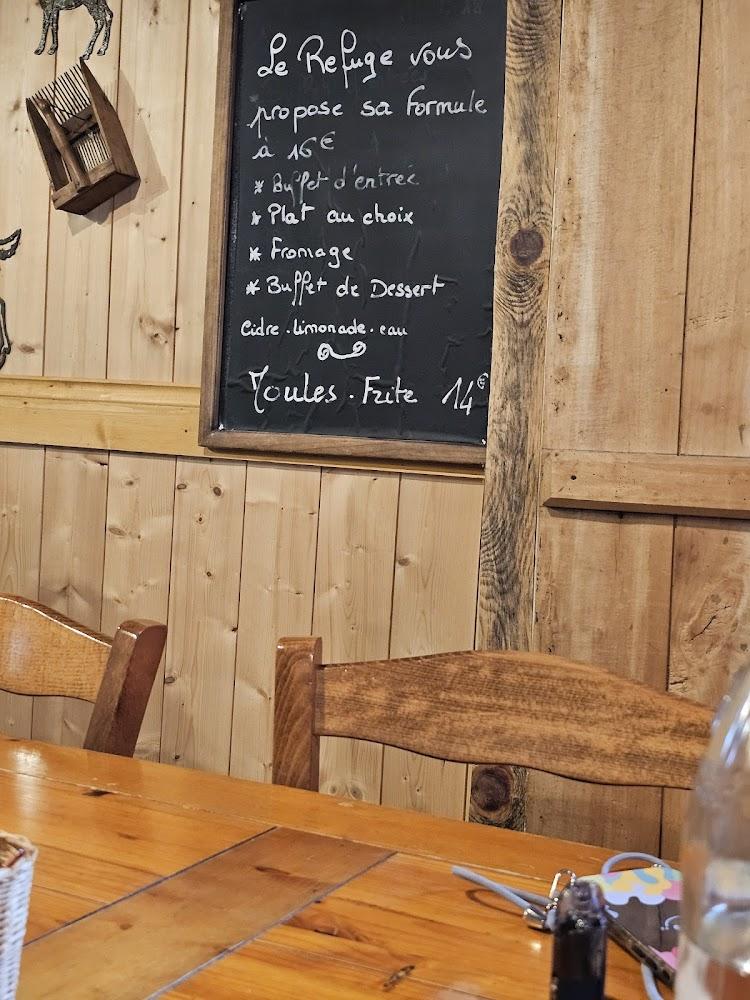 Le Refuge vous
propose sa formule
à 16€
* Buffet d'entrée
* Plat au choix
* Fromage
* Buffet de Dessert
Cidre . limonade . eau
Moules . Frite 14€